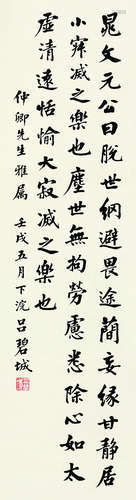 晁文元公曰脫世網避畏途蕳妄緣甘靜居
小寂滅之樂也塵世無拘勞慮悉除心如太
虛清遠恬愉大寂滅之樂也
仲卿先生雅屬 壬戌五月下浣 呂碧城